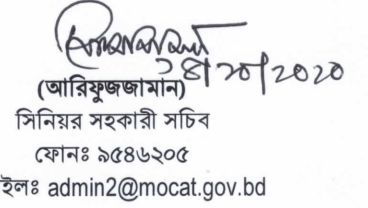 ১৪/১০/২০২০
(আরিফুজজামান)
সিনিয়র সহকারী সচিব
ফোনঃ ৯৫৪৬২০৫
ইলঃ admin2@mocat.gov.bd